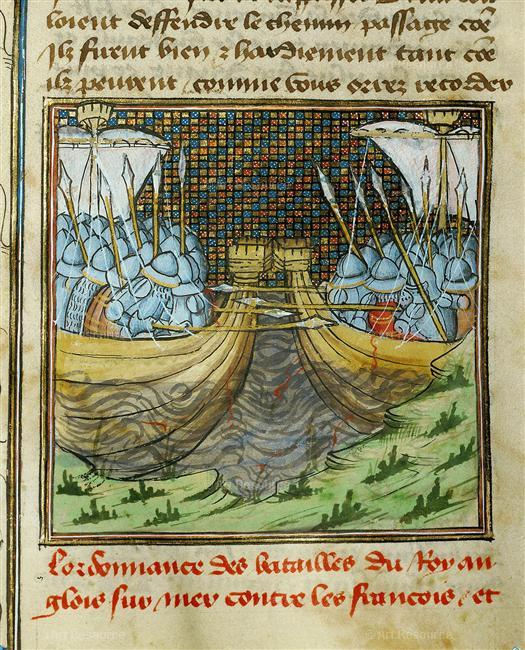 loient deffendre le chemin passaige côe
Ilz furent bien & hardiement tant côe
ilz peurent comme vous orrez recorder
Lordonnance des batailles du Roy an
glois sur mer contre les francois et
Art Resource
Art Resource